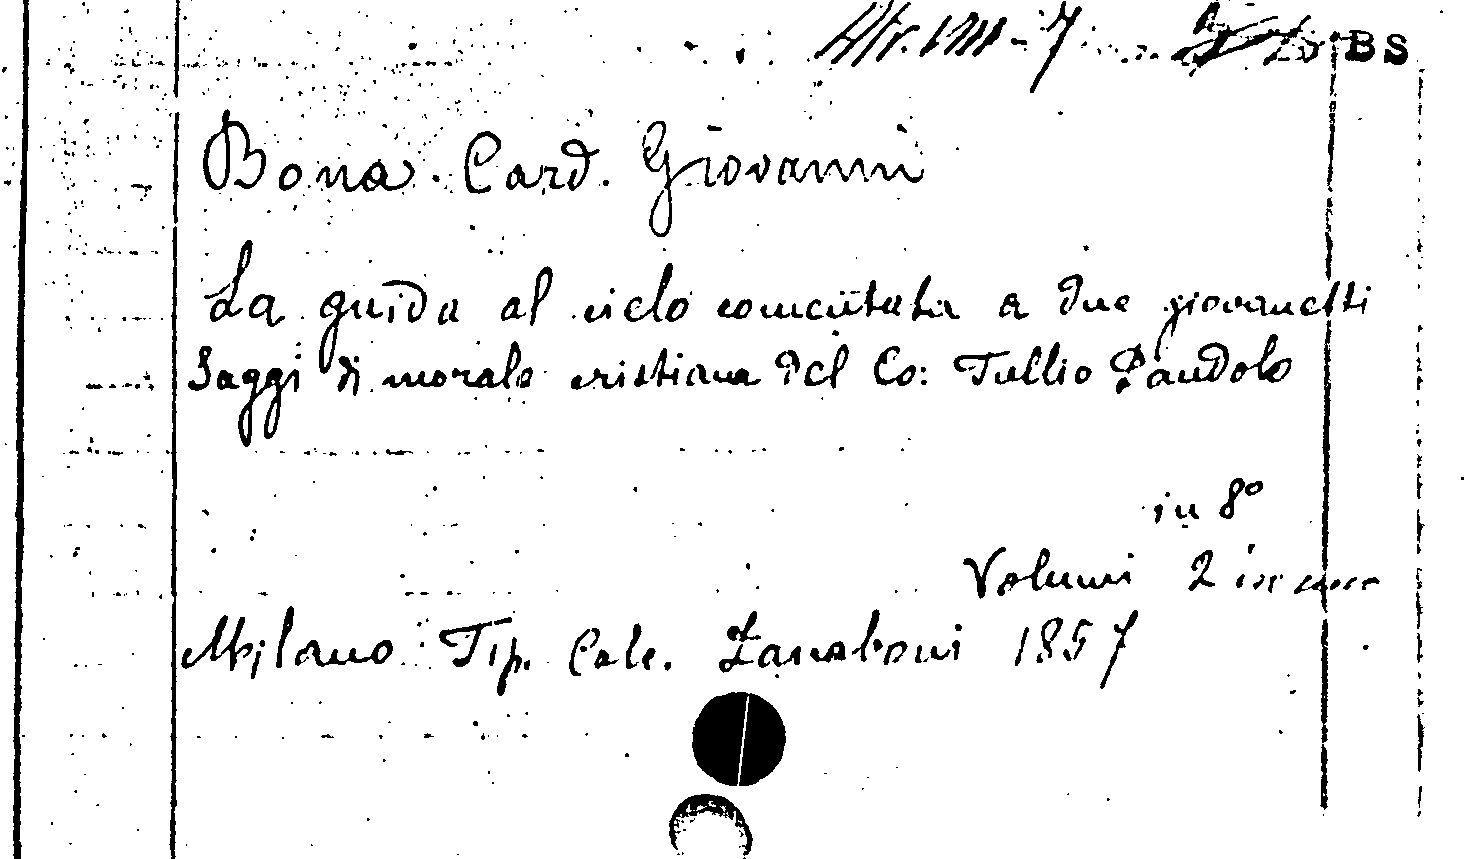 BS
Bona Card. Giovanni
La guida al cielo comentata a due giovanetti
Saggi di morale cristiana del Co: Tullio Dandolo
in 8º
Volumi 2 in uno
Milano Tip. Calc. Zanaboni 1857